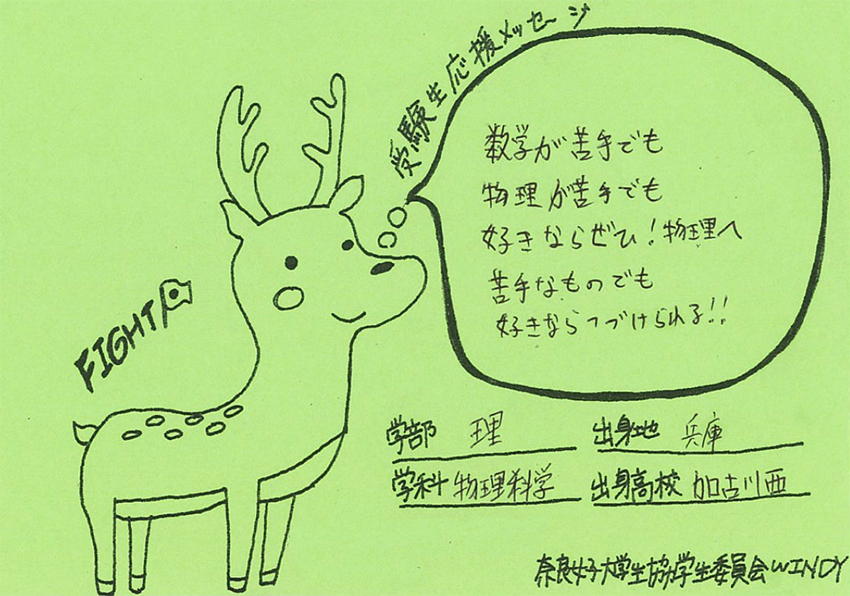 受験生応援メッセージ
数学が苦手でも
物理が苦手でも
好きならぜひ！物理へ
苦手なものでも
好きならつづけられる!!
FIGHT
学部 理
出身地 兵庫
学科 物理科学
出身高校 加古川西
奈良女子大学生協学生委員会WINDY